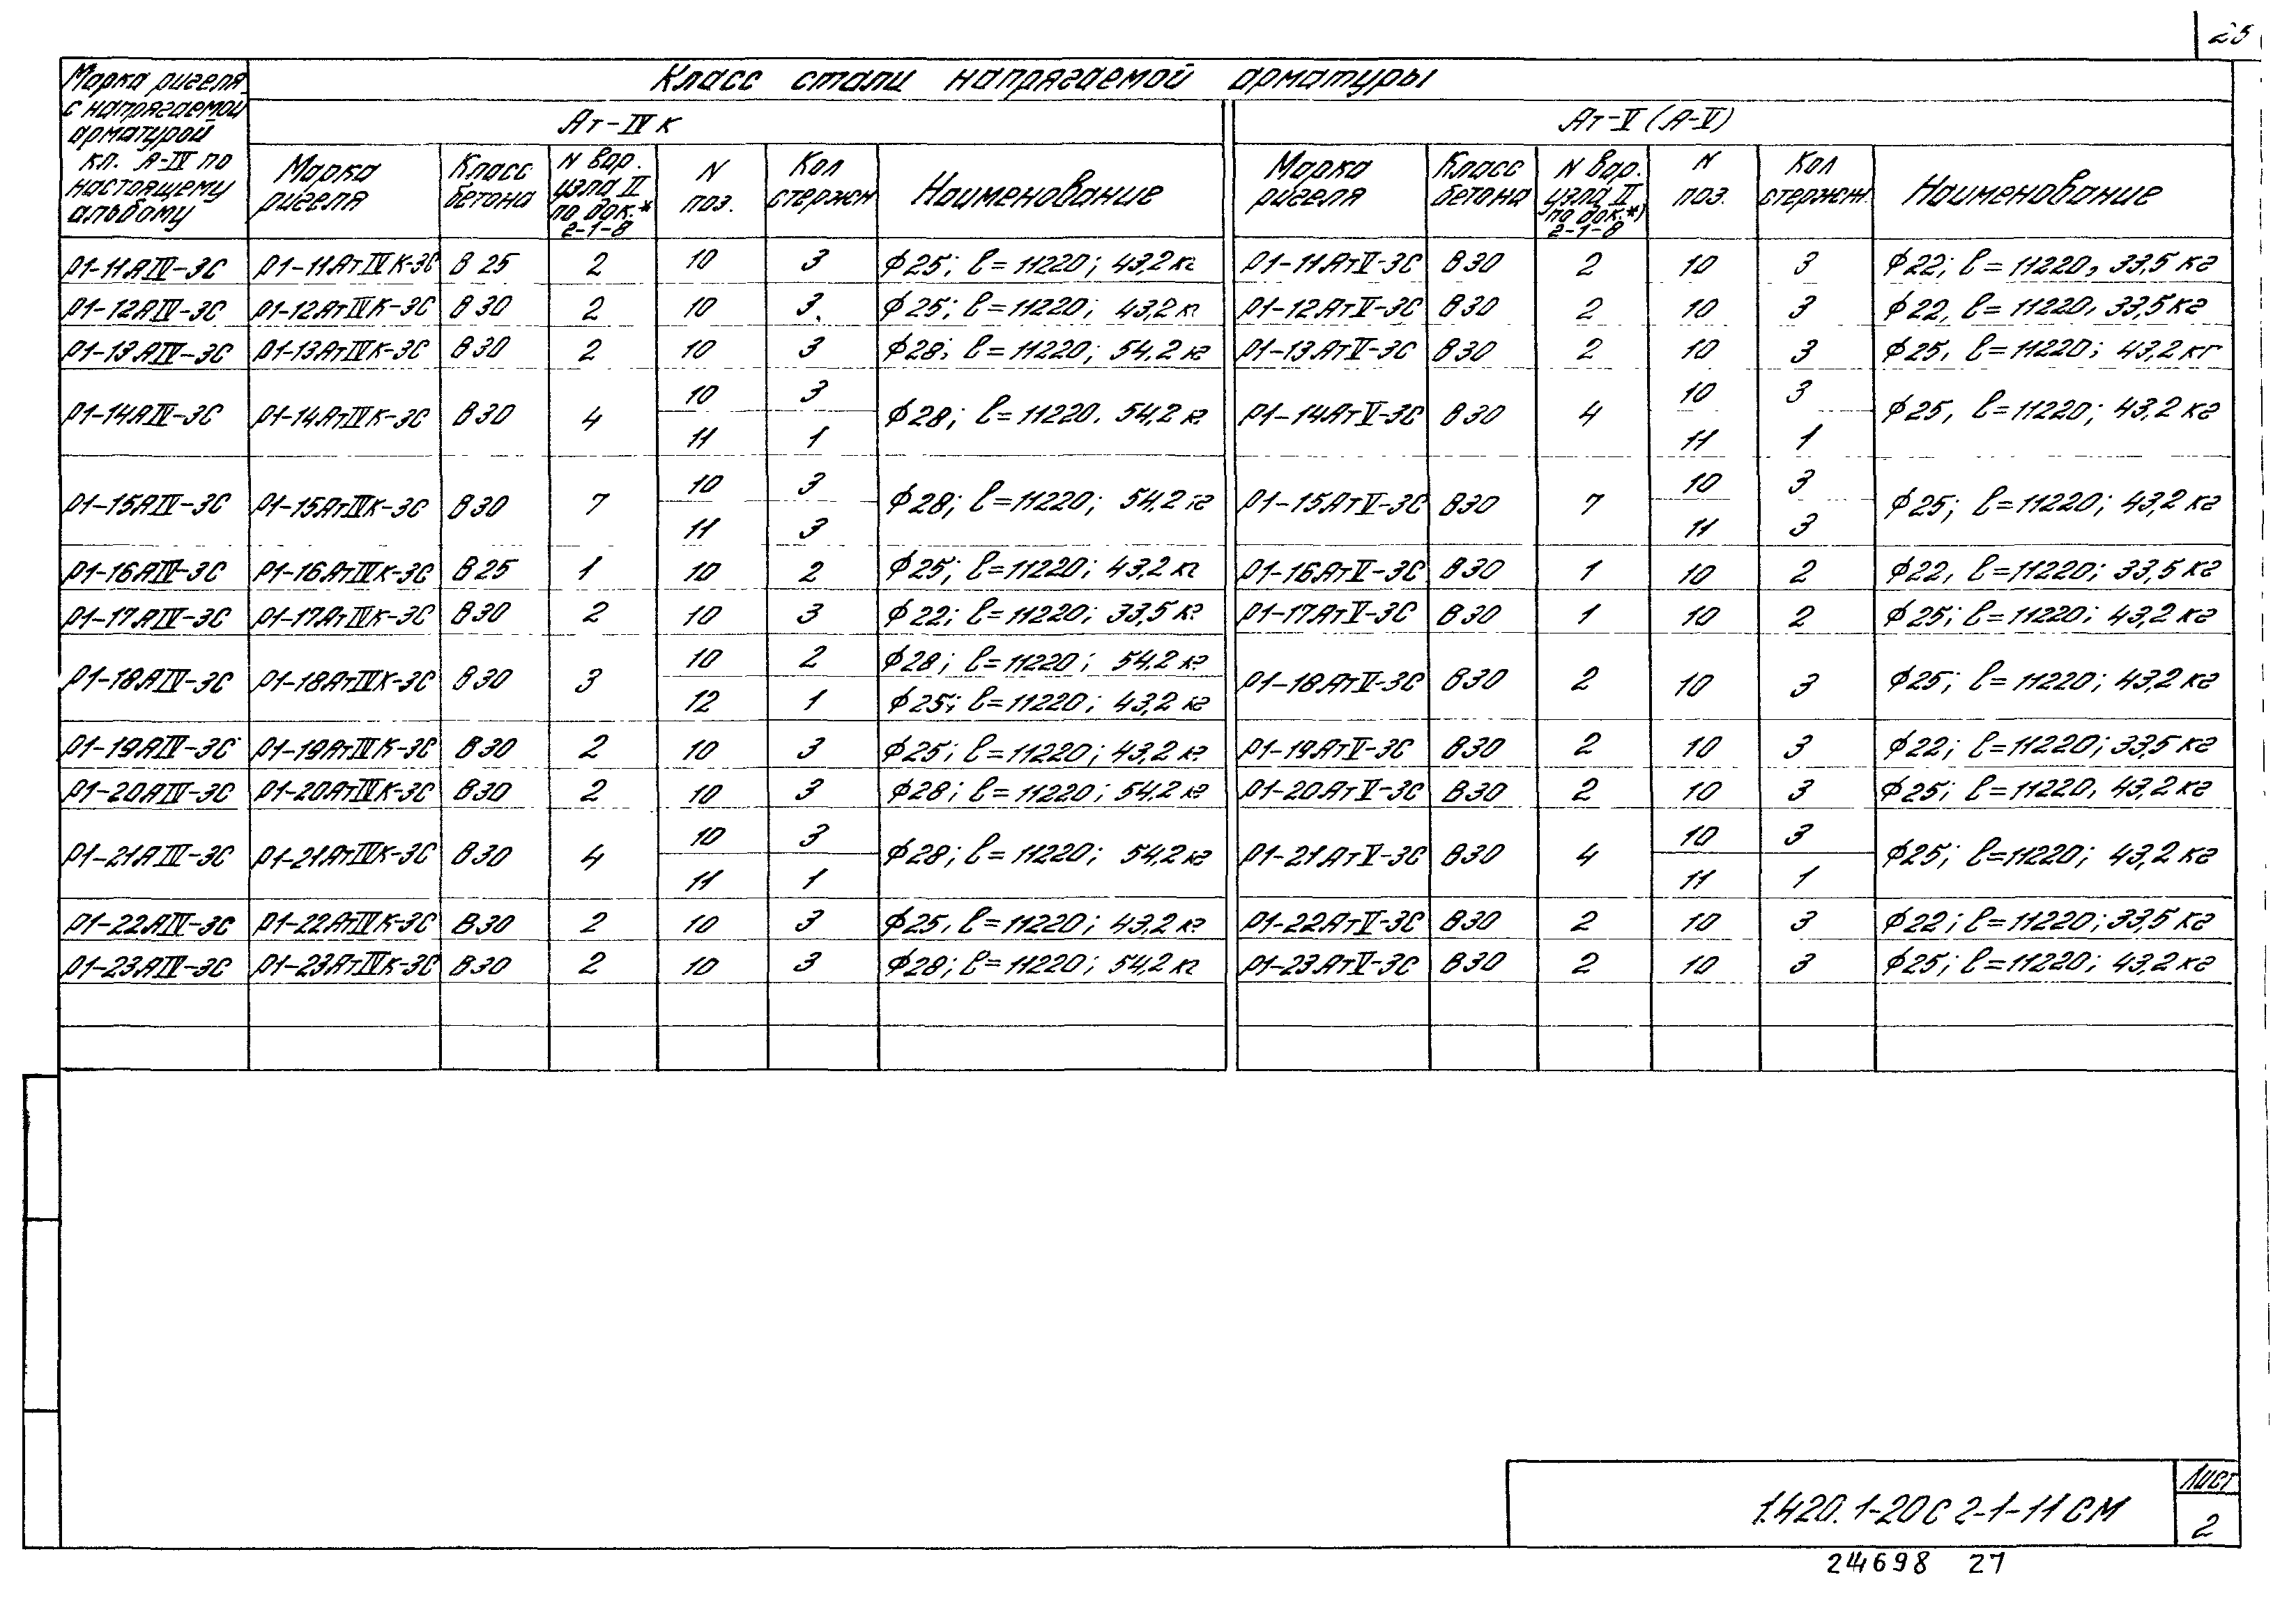 25
Марка ригеля с напрягаемой арматурой кл. А-IV по настоящему альбому
Класс стали напрягаемой арматуры
Ат-IV К
Ат-V (А-V)
Марка ригеля
Класс бетона
N вар. узла II по док.* 2-1-8
N поз.
Кол стержн
Наименование
Марка ригеля
Класс бетона
N вар. узла II по док.*) 2-1-8
N поз.
Кол стержн.
Наименование
Р1-11АIV-3С Р1-11АтIVК-3С В 25 2 10 3 ϕ25; ℓ=11220; 43,2 кг Р1-11АтV-3С В30 2 10 3 ϕ22; ℓ=11220, 33,5 кг
Р1-12АIV-3С Р1-12АтIVК-3С В 30 2 10 3. ϕ25; ℓ=11220; 43,2 кг Р1-12АтV-3С В30 2 10 3 ϕ22, ℓ=11220, 33,5 кг
Р1-13АIV-3С Р1-13АтIVК-3С В30 2 10 3 ϕ28; ℓ=11220; 54,2 кг Р1-13АтV-3С В30 2 10 3 ϕ25, ℓ=11220; 43,2 кг
Р1-14АIV-3С Р1-14АтIVК-3С В30 4 10 3 ϕ28; ℓ=11220. 54,2 кг Р1-14АтV-3С В30 4 10 3 ϕ25, ℓ=11220; 43,2 кг
11 1 11 1
Р1-15АIV-3С Р1-15АтIVК-3С В30 7 10 3 ϕ28; ℓ=11220; 54,2 кг Р1-15АтV-3С В30 7 10 3 ϕ25; ℓ=11220; 43,2 кг
11 3 11 3
Р1-16АIV-3С Р1-16АтIVК-3С В25 1 10 2 ϕ25; ℓ=11220; 43,2 кг Р1-16АтV-3С В30 1 10 2 ϕ22, ℓ=11220; 33,5 кг
Р1-17АIV-3С Р1-17АтIVК-3С В30 2 10 3 ϕ22; ℓ=11220; 33,5 кг Р1-17АтV-3С В30 1 10 2 ϕ25; ℓ=11220; 43,2 кг
Р1-18АIV-3С Р1-18АтIVК-3С В30 3 10 2 ϕ28; ℓ=11220; 54,2 кг Р1-18АтV-3С В30 2 10 3 ϕ25; ℓ=11220; 43,2 кг
12 1 ϕ25; ℓ=11220; 43,2 кг
Р1-19АIV-3С Р1-19АтIVК-3С В30 2 10 3 ϕ25; ℓ=11220; 43,2 кг Р1-19АтV-3С В30 2 10 3 ϕ22; ℓ=11220; 33,5 кг
Р1-20АIV-3С Р1-20АтIVК-3С В30 2 10 3 ϕ28; ℓ=11220; 54,2 кг Р1-20АтV-3С В30 2 10 3 ϕ25; ℓ=11220, 43,2 кг
Р1-21АIV-3С Р1-21АтIVК-3С В30 4 10 3 ϕ28; ℓ=11220; 54,2 кг Р1-21АтV-3С В30 4 10 3 ϕ25; ℓ=11220; 43,2 кг
11 1 11 1
Р1-22АIV-3С Р1-22АтIVК-3С В30 2 10 3 ϕ25, ℓ=11220; 43,2 кг Р1-22АтV-3С В30 2 10 3 ϕ22; ℓ=11220; 33,5 кг
Р1-23АIV-3С Р1-23АтIVК-3С В30 2 10 3 ϕ28; ℓ=11220; 54,2 кг Р1-23АтV-3С В30 2 10 3 ϕ25; ℓ=11220; 43,2 кг
1.420.1-20С 2-1-11СМ
Лист
2
24698 27